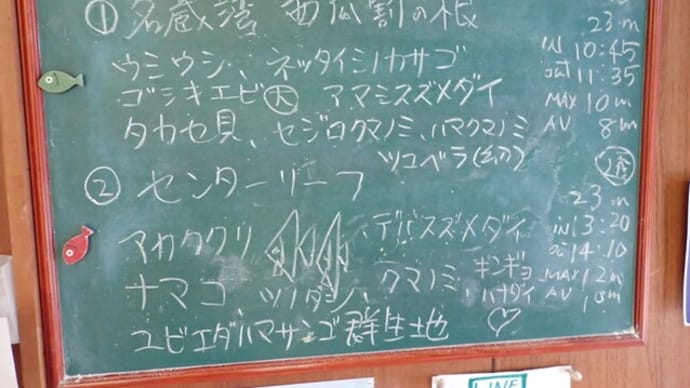 ① 名蔵湾 西瓜割の根
ウミウシ、ネッタイミノカサゴ
ゴシキエビ大 アマミスズメダイ
タカセ貝、セジロクマノミ、ハマクマノミ
ツユベラ(幼)
23m
IN 10:45
out 11:35
MAX 10m
AV 8m
② センターリーフ
アカククリ デバスズメダイ
ナマコ ツノダシ、クマノミ キンギョハナダイ
ユビエダハマサンゴ群生地 ♡
23m
IN 13:20
14:10
MAX 12m
AV
LINE